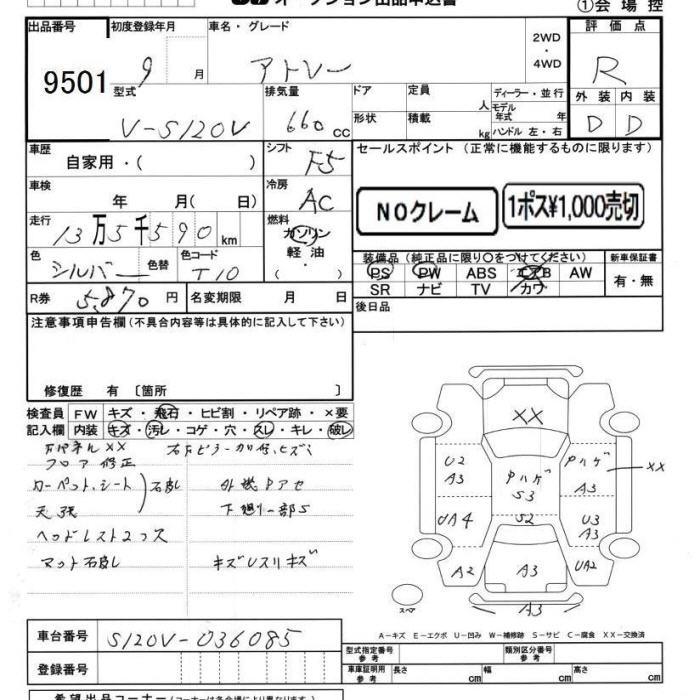 オークション出品申込書
①会場控
出品番号 初度登録年月 車名・グレード 2WD ・ 4WD 評価点
9501 9月 アトレー R
型式 排気量 ドア 定員 人 ディーラー・並行 外装 内装
V-S120V 660cc 形状 積載 kg モデル年式 年 ハンドル 左・右 D D
車歴 自家用・( ) シフト F5 セールスポイント (正常に機能するものに限ります)
車検 年 月( 日) 冷房 AC
NOクレーム 1ポス¥1,000売切
走行 13万5千590km 燃料 ガソリン 軽油 ( ・ )
色 シルバー 色替 色コード T10
装備品 (純正品に限り○をつけてください) 新車保証書
PS PW ABS エアB AW 有・無
SR ナビ TV カワ
R券 5,870円 名変期限 月 日 後日品
注意事項申告欄(不具合内容等は具体的に記入して下さい)
修復歴 有 〔箇所 〕
検査員 FW キズ・飛石・ヒビ割・リペア跡・×要
記入欄 内装 キズ・汚レ・コゲ・穴・スレ・キレ・破レ
フロア修正
カーペット、シート
天張
ヘッドレスト2コ欠
下廻り一部S
キズUスリキズ
XX
U2 A3 PハゲS3 Pハゲ A3 XX
UA4 S2 U3 A3
A2 A3 UA2
A3
スペア
A-キズ E-エクボ U-凹み W-補修跡 S-サビ C-腐食 XX-交換済
車台番号 S120V-036085
型式指定番号 参考 類別区分番号 参考
登録番号
車庫証明用 参考 長さ cm 幅 cm 高さ cm
希望出品コーナー(コーナーは各会場により異なります)